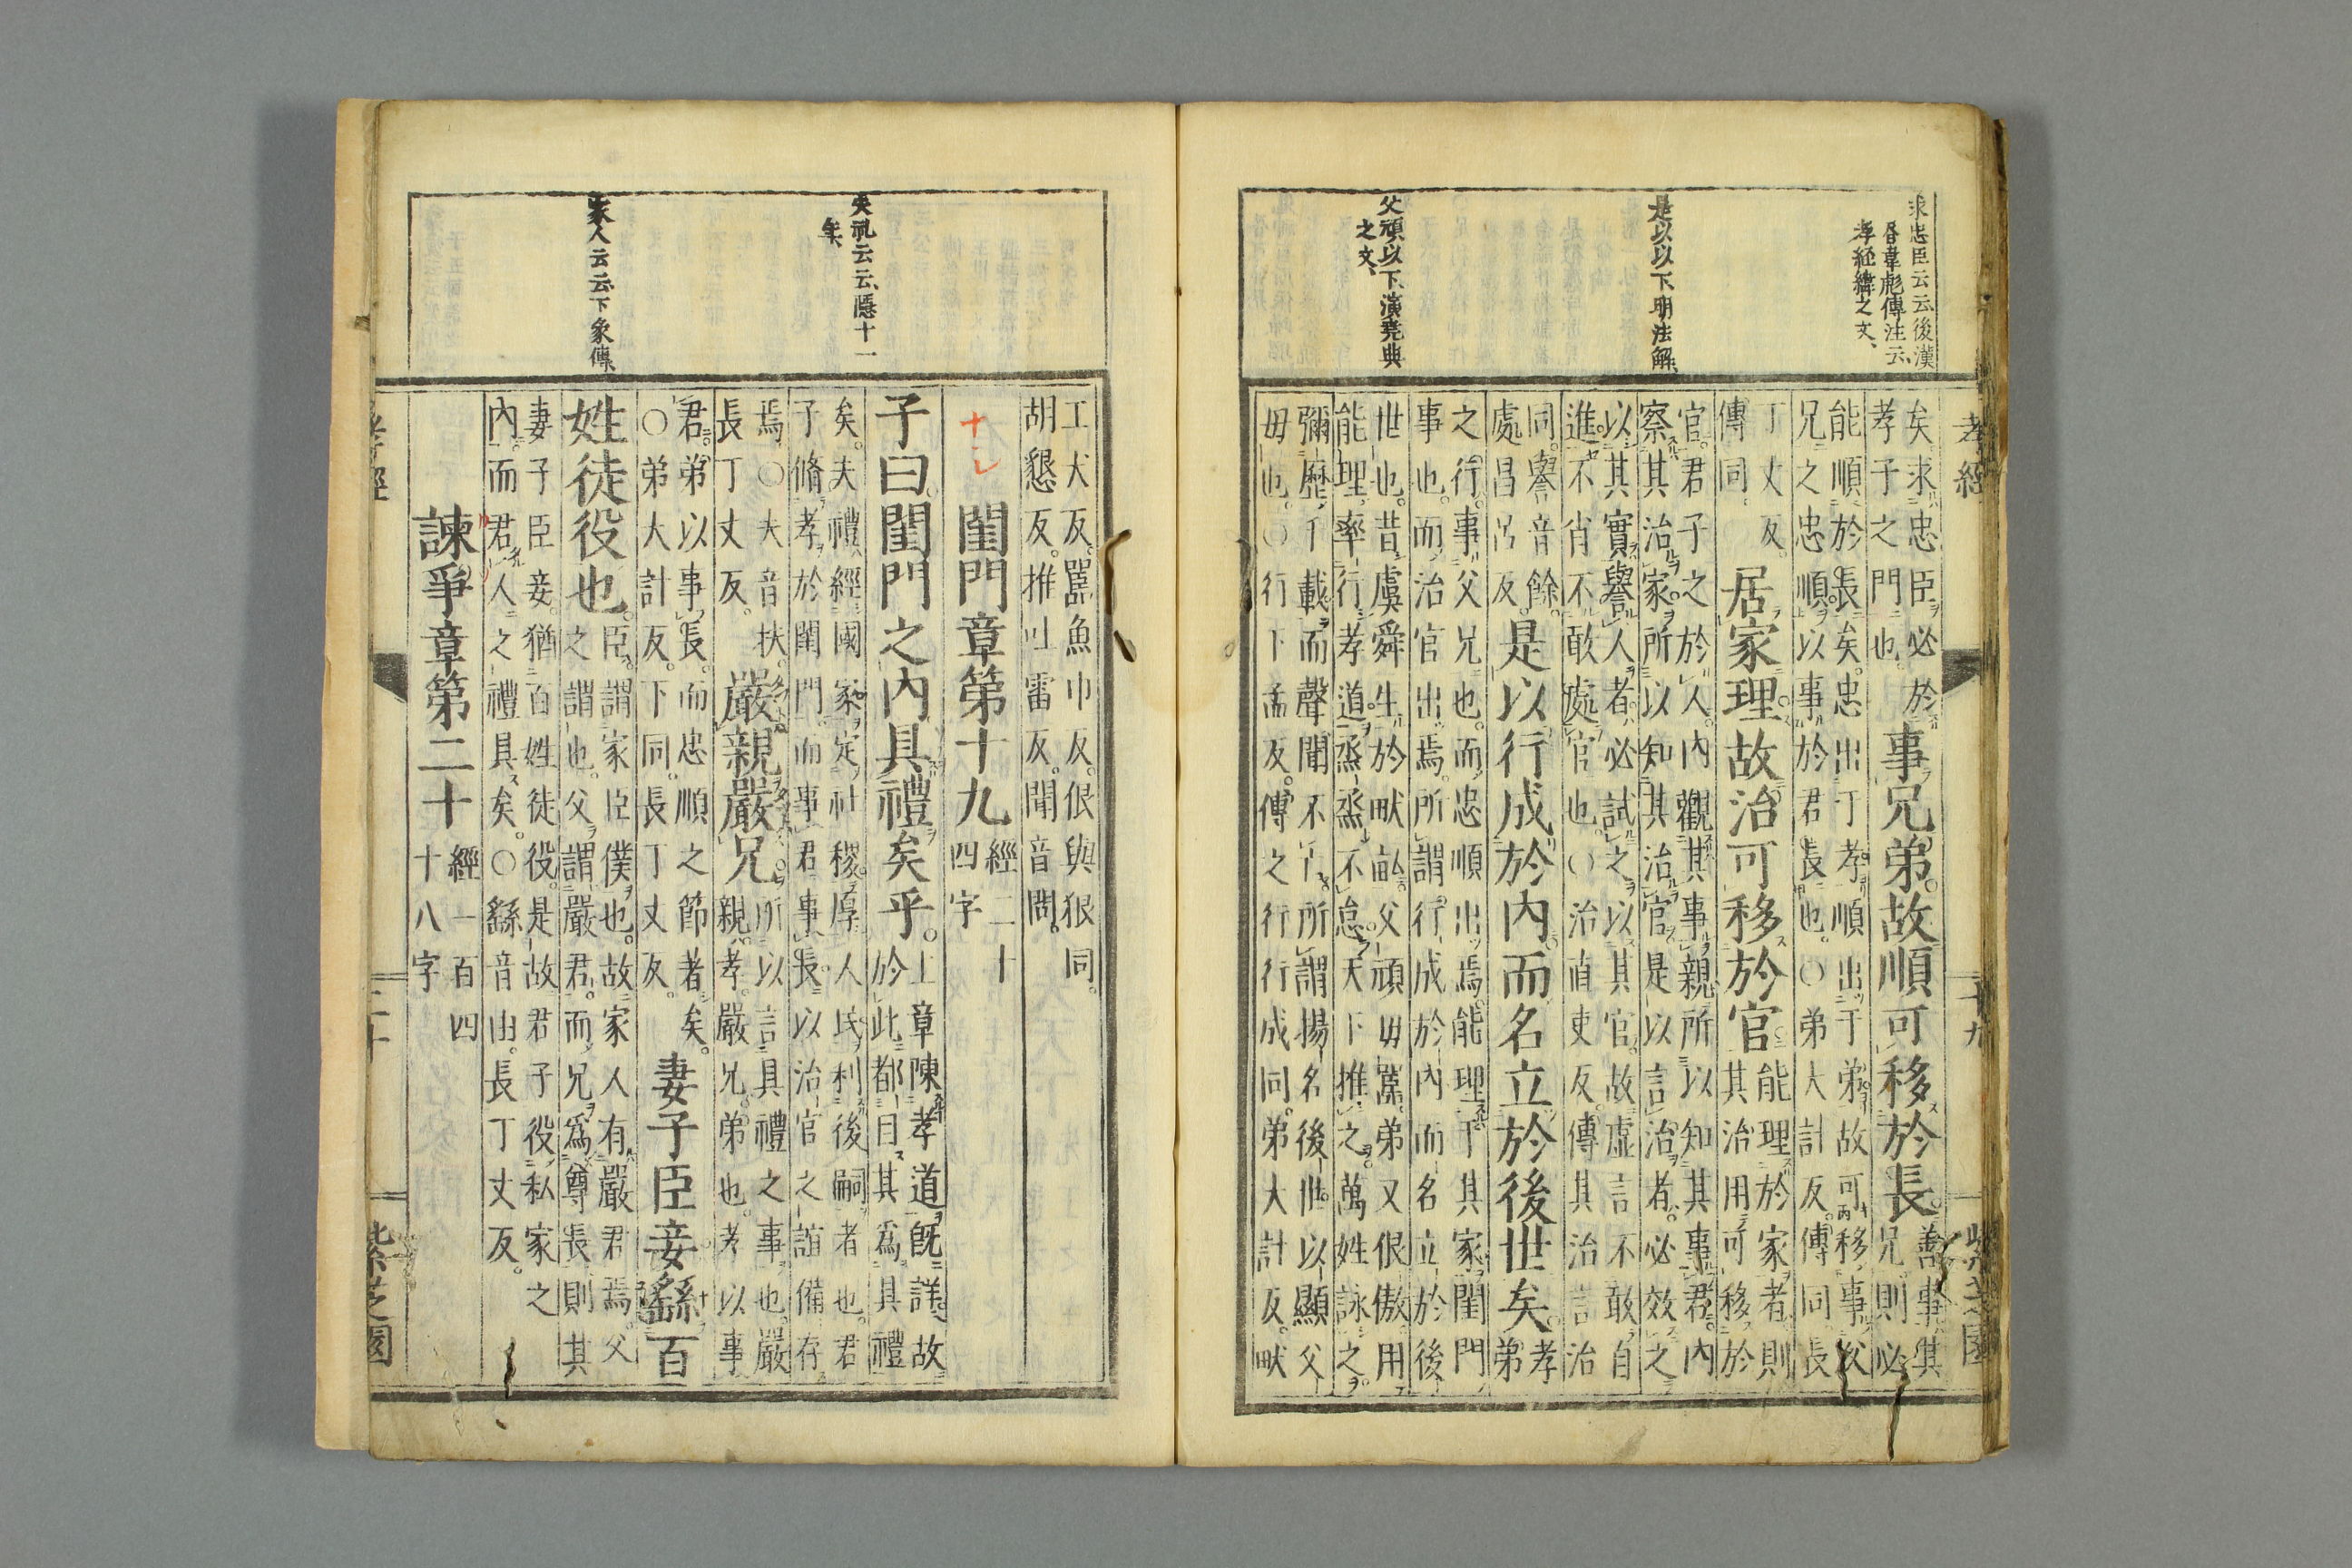 孝經 二十九 紫芝園
求忠臣云云後漢
書韋彪傳注云、
孝經緯之文、
是以以下、明法解、
父頑以下、演堯典
之文、
矣求忠臣必於
孝子之門也。
事兄弟。故順可移於長。
善事其
兄則必
能順於長矣。忠出于孝。順出于弟。故可移事父
兄之忠順以事於君長也。○弟大計反。傳同。長
丁丈反。
傳同。
居家理故治可移於官。
能理於家者則
其治用可移於
官。君子之於人。内觀其事親所以知其事君。内
察其治家所以知其治官。是以言治者。必效之
以其實譽人者。必試之以其官。故虚言不敢自
進。不肖不敢處官也。○治直吏反。傳其治言治
同。譽音餘。
處昌呂反。
是以行成於内而名立於後世矣。
孝
弟
之行。事父兄也。而忠順出焉。能理于其家閨門
事也。而治官出焉。所謂行成於内而名立於後
世也。昔虞舜生於畎畝。父頑毋嚚。弟又佷傲。用
能理率行孝道。烝烝不怠。天下推之。萬姓詠之。
彌歷千載而聲聞不亡。所謂揚名後世。以顯父
毋也。○行下孟反。傳之行行成同。弟大計反。畎
夫礼云云、隱十一
年、
家人云云、下象傳、
工犬反。嚚魚巾反。佷與狠同。
胡懇反。推吐雷反。聞音問。
閨門章第十九
經二十
四字
子曰。閨門之内具禮矣乎。
上章陳孝道既詳。故
於此都目其爲具禮
矣。夫禮經國家定社稷厚人民利後嗣者也。君
子脩孝於閨門。而事君事長。以治官之誼備存
焉。○夫音扶。
長丁丈反。
嚴親嚴兄。
所以言具禮之事也。嚴
親孝。嚴兄。弟也。孝以事
君。弟以事長。而忠順之節著矣。
○弟大計反。下同。長丁丈反。
妻子臣妾繇百
姓徒役也。
臣。謂家臣僕也。故家人有嚴君焉。父
之謂也。父謂嚴君。而兄爲尊長則其
妻子臣妾。猶百姓徒役。是故君子役私家之
内。而君人之禮具矣。○繇音由。長丁丈反。
諫爭章第二十
經一百四
十八字
孝經 三十 紫芝園